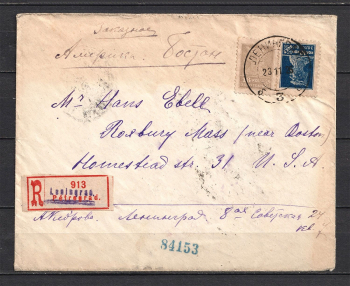 Заказное
Америка. Бостон
ЛЕНИНГРАД
23 11
3
Mr Hans Ebell
Roxbury Mass (near Boston)
Homestead str. 31 U. S. A
R
913
Leningrad.
Petrograd.
Ленинград 8ая Советская 24
кв.
84153